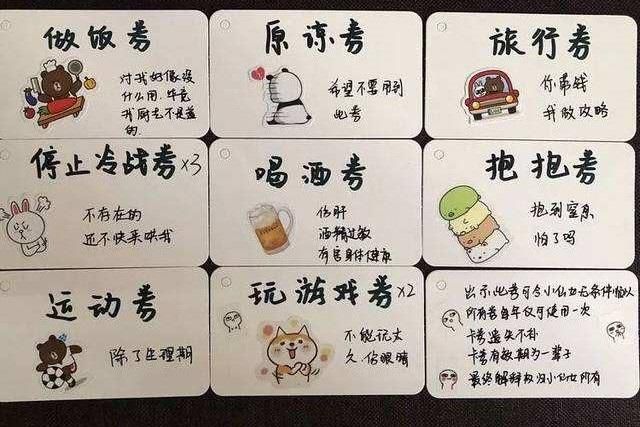 做饭券
对我好像没
什么用,毕竟
我厨艺不是盖
的.
原谅券
希望不要用到
此券
旅行券
你带钱
我做攻略
停止冷战券×3
不存在的
还不快来哄我
喝酒券
伤肝
酒精过敏
有害身体健康
抱抱券
抱到窒息
怕了吗
运动券
除了生理期
玩游戏券×2
不能玩太
久,伤眼睛
出示此券可令小仙女无条件服从
所有券每年仅可使用一次
卡券遗失不补
卡券有效期为一辈子
最终解释权归小仙女所有